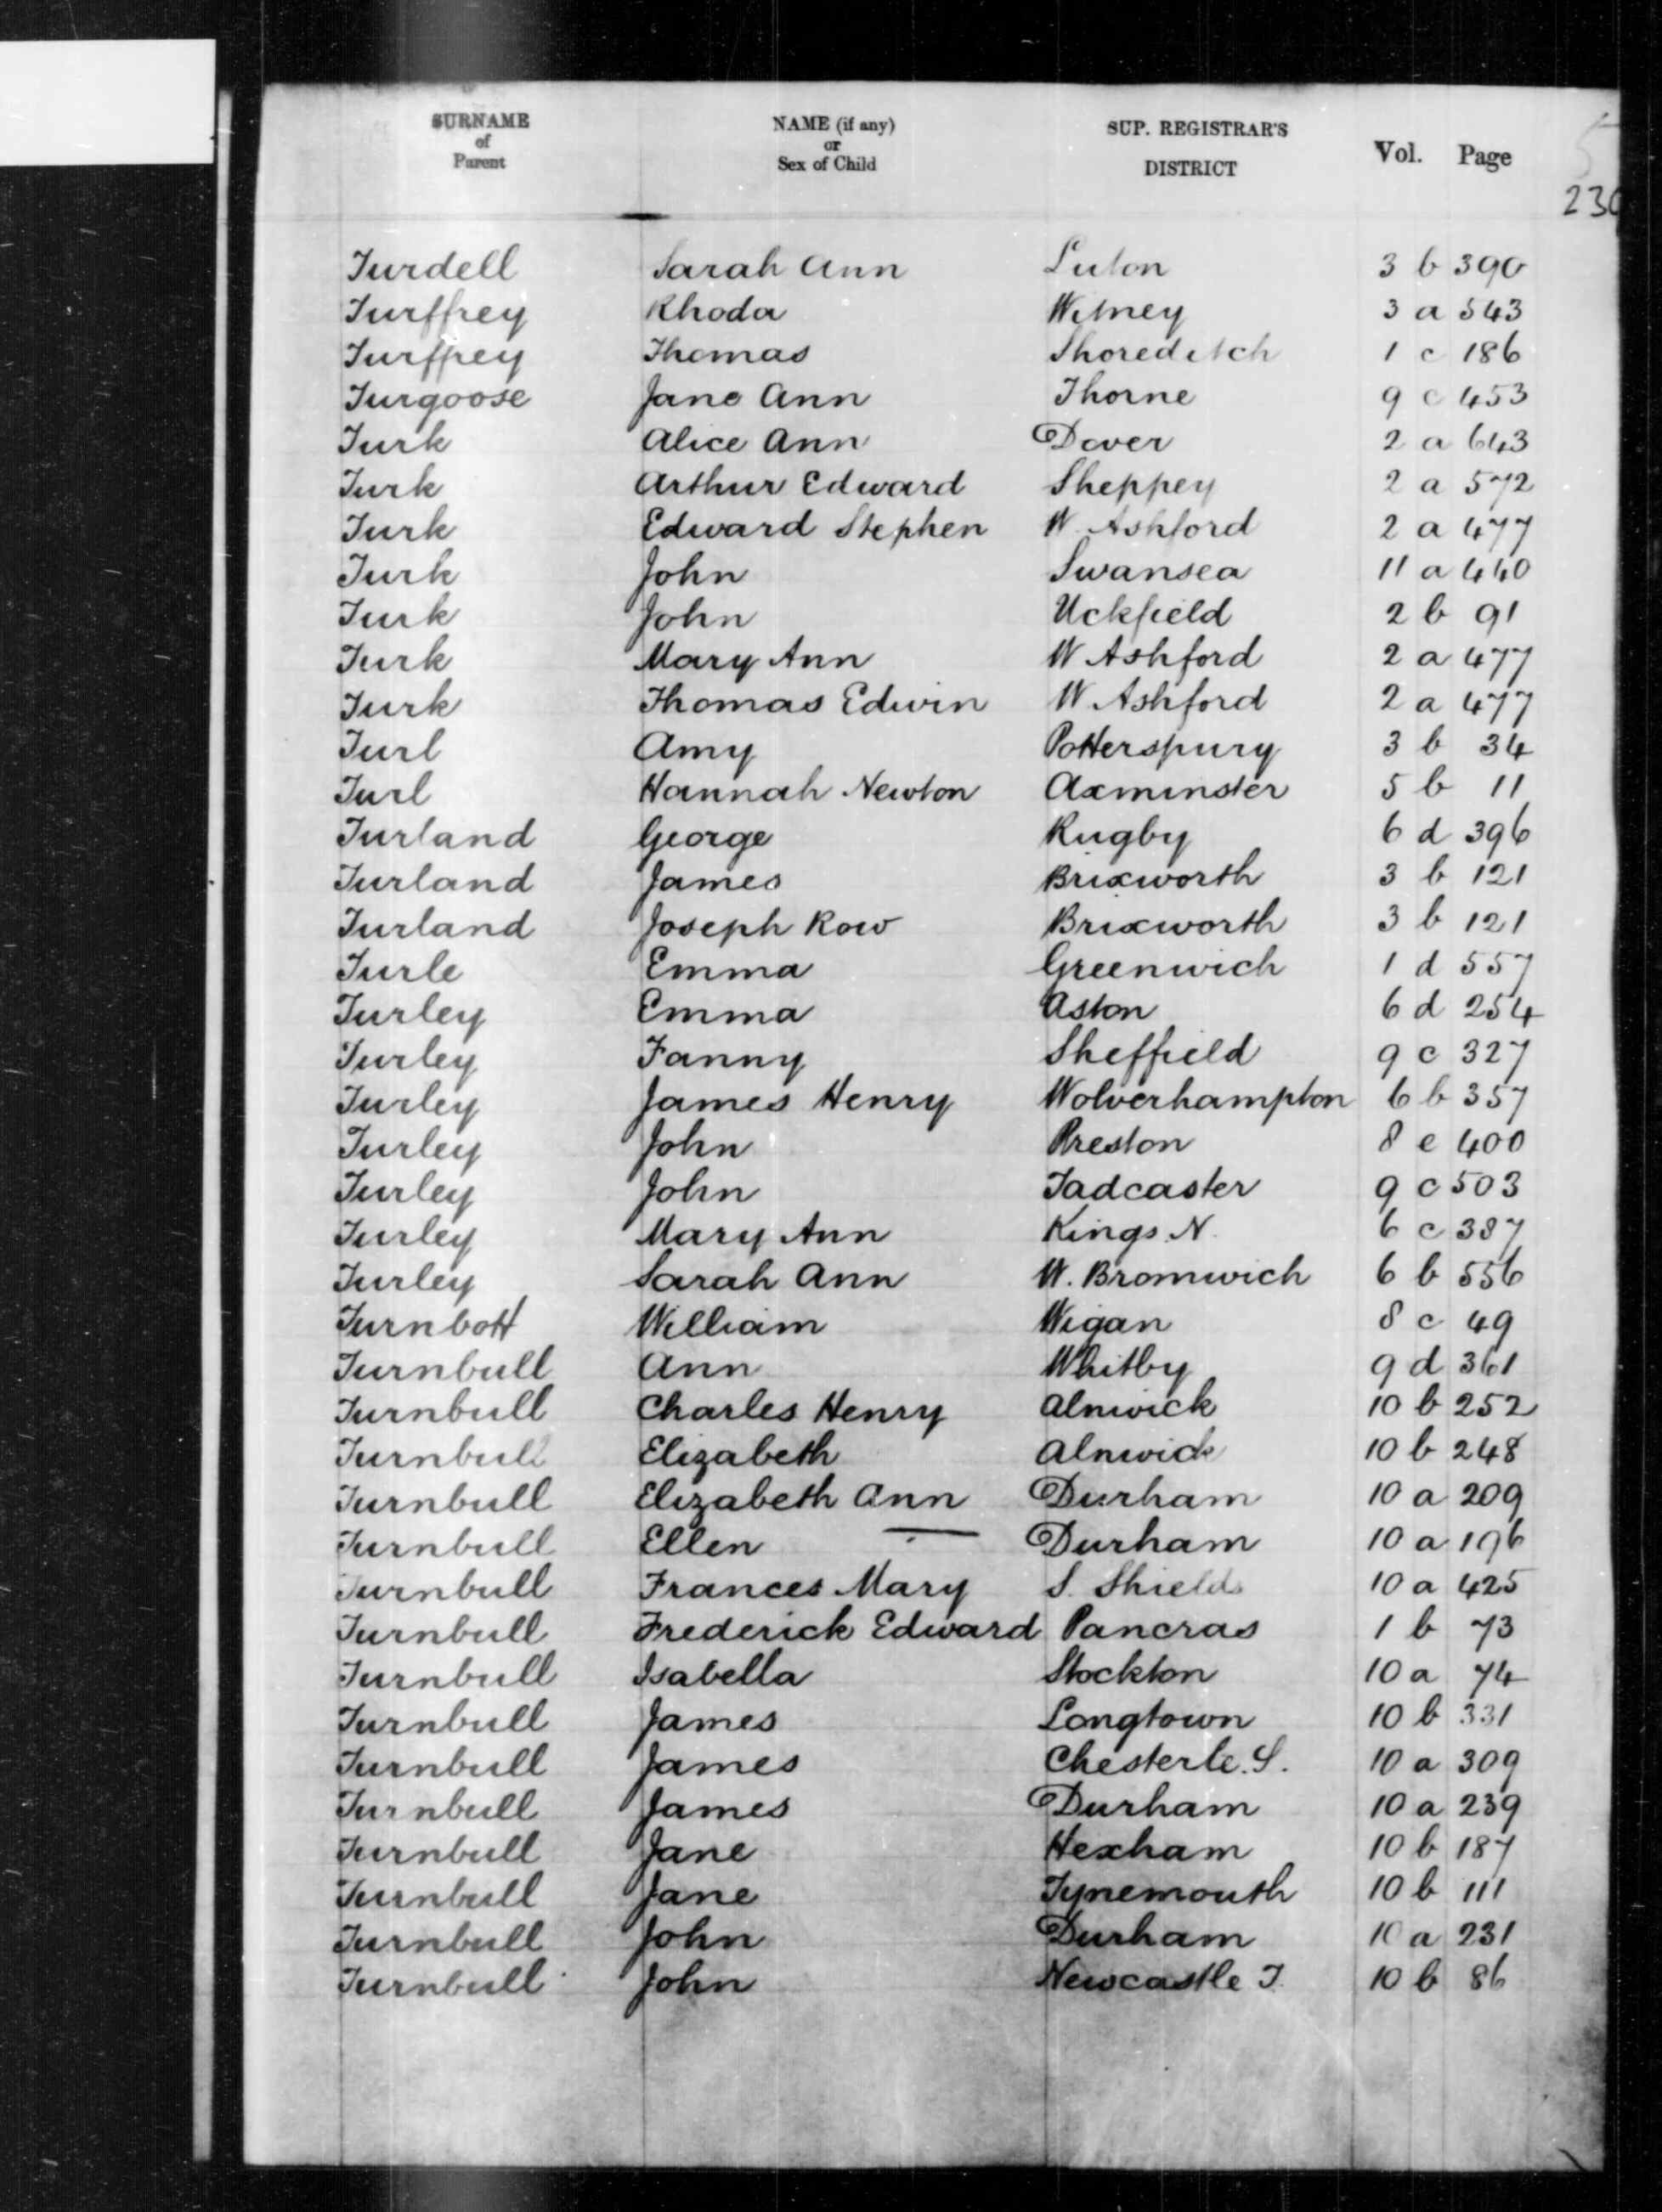 SURNAME of Parent NAME (if any) or Sex of Child SUP. REGISTRAR'S DISTRICT Vol. Page
Turdell Sarah Ann Luton 3 b 390
Turffrey Rhoda Witney 3 a 543
Turffrey Thomas Shoreditch 1 c 186
Turgoose Jane Ann Thorne 9 c 453
Turk Alice Ann Dover 2 a 643
Turk Arthur Edward Sheppey 2 a 572
Turk Edward Stephen W. Ashford 2 a 477
Turk John Swansea 11 a 440
Turk John Uckfield 2 b 91
Turk Mary Ann W Ashford 2 a 477
Turk Thomas Edwin W. Ashford 2 a 477
Turl Amy Potterspury 3 b 34
Turl Hannah Newton Axminster 5 b 11
Turland George Rugby 6 d 396
Turland James Brixworth 3 b 121
Turland Joseph Row Brixworth 3 b 121
Turle Emma Greenwich 1 d 557
Turley Emma Aston 6 d 254
Turley Fanny Sheffield 9 c 327
Turley James Henry Wolverhampton 6 b 357
Turley John Preston 8 e 400
Turley John Tadcaster 9 c 503
Turley Mary Ann Kings N. 6 c 387
Turley Sarah Ann W. Bromwich 6 b 556
Turnbott William Wigan 8 c 49
Turnbull Ann Whitby 9 d 361
Turnbull Charles Henry Alnwick 10 b 252
Turnbull Elizabeth Alnwick 10 b 248
Turnbull Elizabeth Ann Durham 10 a 209
Turnbull Ellen Durham 10 a 196
Turnbull Frances Mary S. Shields 10 a 425
Turnbull Frederick Edward Pancras 1 b 73
Turnbull Isabella Stockton 10 a 74
Turnbull James Longtown 10 b 331
Turnbull James Chester le. S. 10 a 309
Turnbull James Durham 10 a 239
Turnbull Jane Hexham 10 b 187
Turnbull Jane Tynemouth 10 b 111
Turnbull John Durham 10 a 231
Turnbull John Newcastle T. 10 b 86